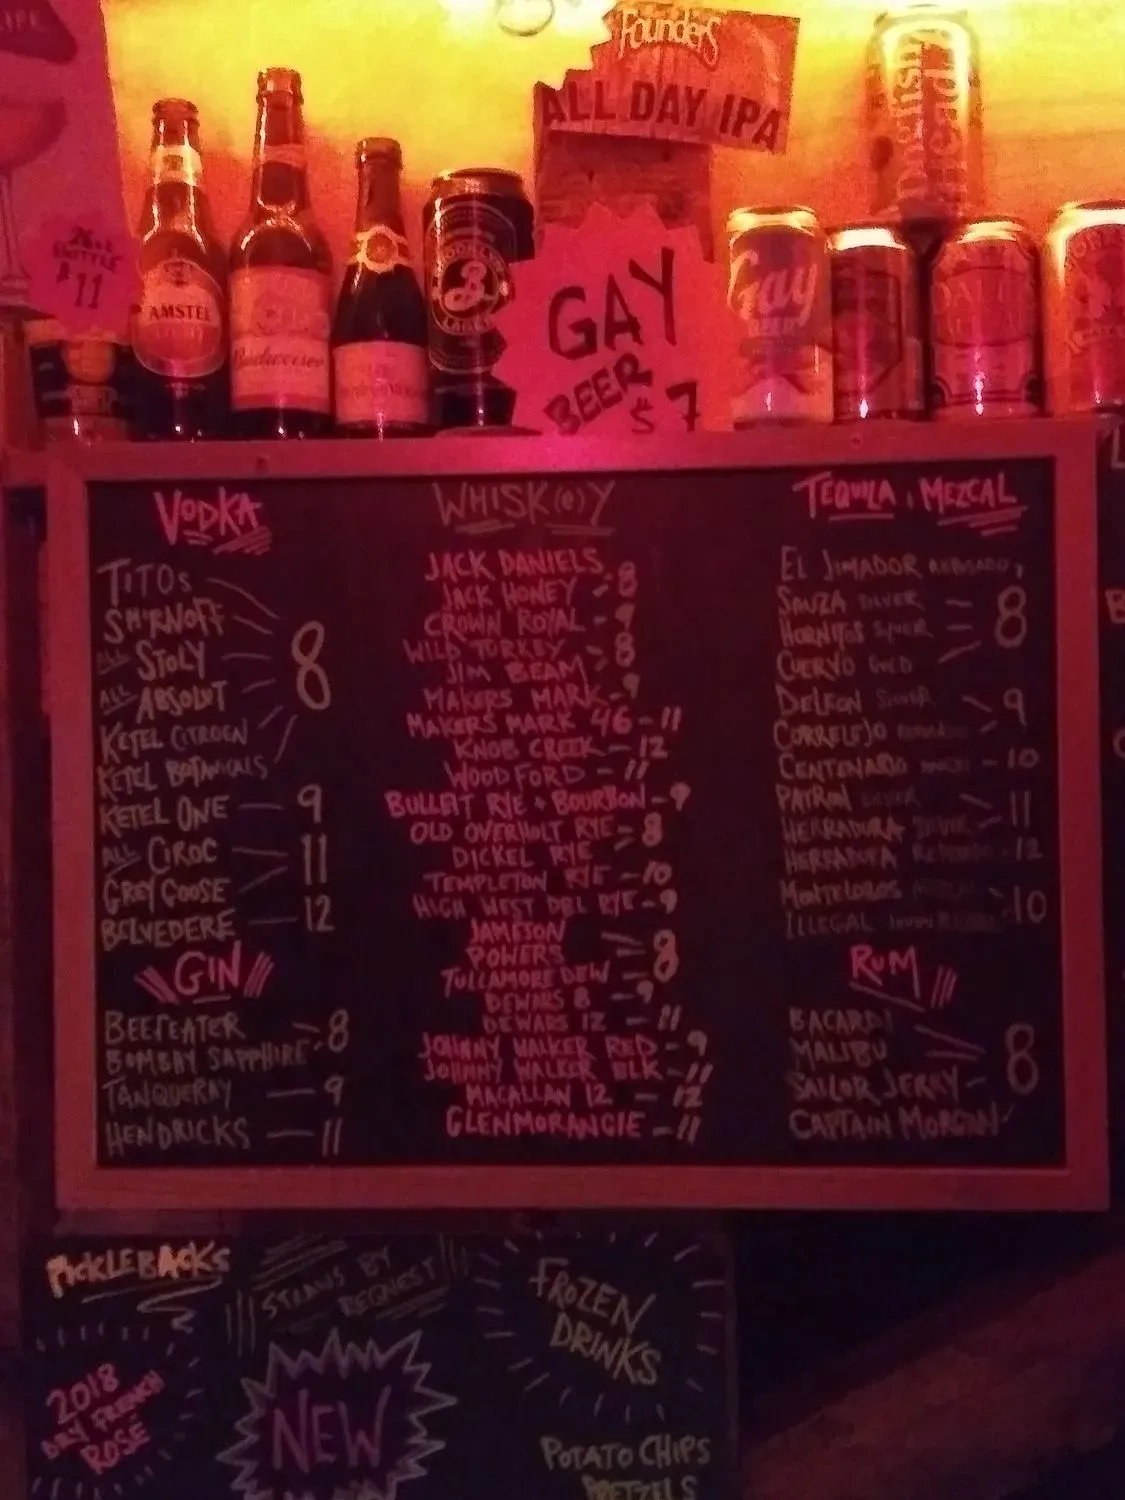 Founders
ALL DAY IPA
BOTTLE
$11
AMSTEL
Budweiser
BROOKLYN
B
LAGER
GAY
BEER
$7
Gay
BEER
VODKA
TITOS
SMIRNOFF
ALL STOLY
ALL ABSOLUT
8
KETEL CITROEN
KETEL BOTANICALS
KETEL ONE — 9
ALL CIROC
GREY GOOSE
11
BELVEDERE — 12
GIN
BEEFEATER
BOMBAY SAPPHIRE
8
TANQUERAY — 9
HENDRICKS — 11
WHISK(e)Y
JACK DANIELS
JACK HONEY
8
CROWN ROYAL - 9
WILD TURKEY
JIM BEAM
8
MAKERS MARK - 9
MAKERS MARK 46 - 11
KNOB CREEK - 12
WOODFORD - 11
BULLEIT RYE + BOURBON - 9
OLD OVERHOLT RYE
DICKEL RYE
8
TEMPLETON RYE - 10
HIGH WEST DBL RYE - 9
JAMESON
POWERS
TULLAMORE DEW
8
DEWARS 8 - 9
DEWARS 12 - 11
JOHNNY WALKER RED - 9
JOHNNY WALKER BLK - 11
MACALLAN 12 - 12
GLENMORANGIE - 11
TEQUILA, MEZCAL
EL JIMADOR REPOSADO
SAUZA SILVER
HORNITOS SILVER
CUERVO GOLD
8
DELEON SILVER
CORRELEJO
9
CENTENARIO - 10
PATRON SILVER
HERRADURA SILVER
11
HERRADURA REPOSADO - 12
MONTELOBOS
ILLEGAL
10
RUM
BACARDI
MALIBU
SAILOR JERRY
CAPTAIN MORGAN
8
PICKLEBACKS
STRAWS BY
REQUEST
FROZEN
DRINKS
2018
DRY FRENCH
ROSE
NEW
POTATO CHIPS
PRETZELS